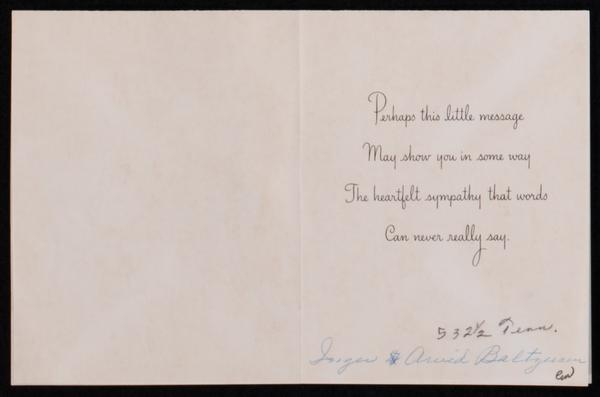 Perhaps this little message
May show you in some way
The heartfelt sympathy that words
Can never really say.
532½ Tenn.
Inger & Arvid